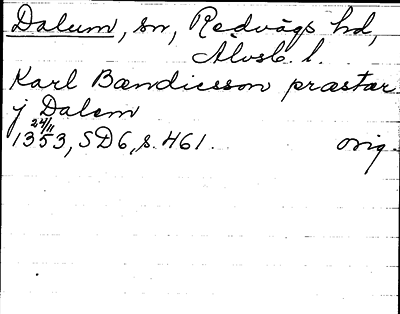 Dalum, sn, Redvägs hd,
Älvsb. l.
Karl Bændicsson præstær
j Dalem
24/11
1353, SD6, s. 461. orig.